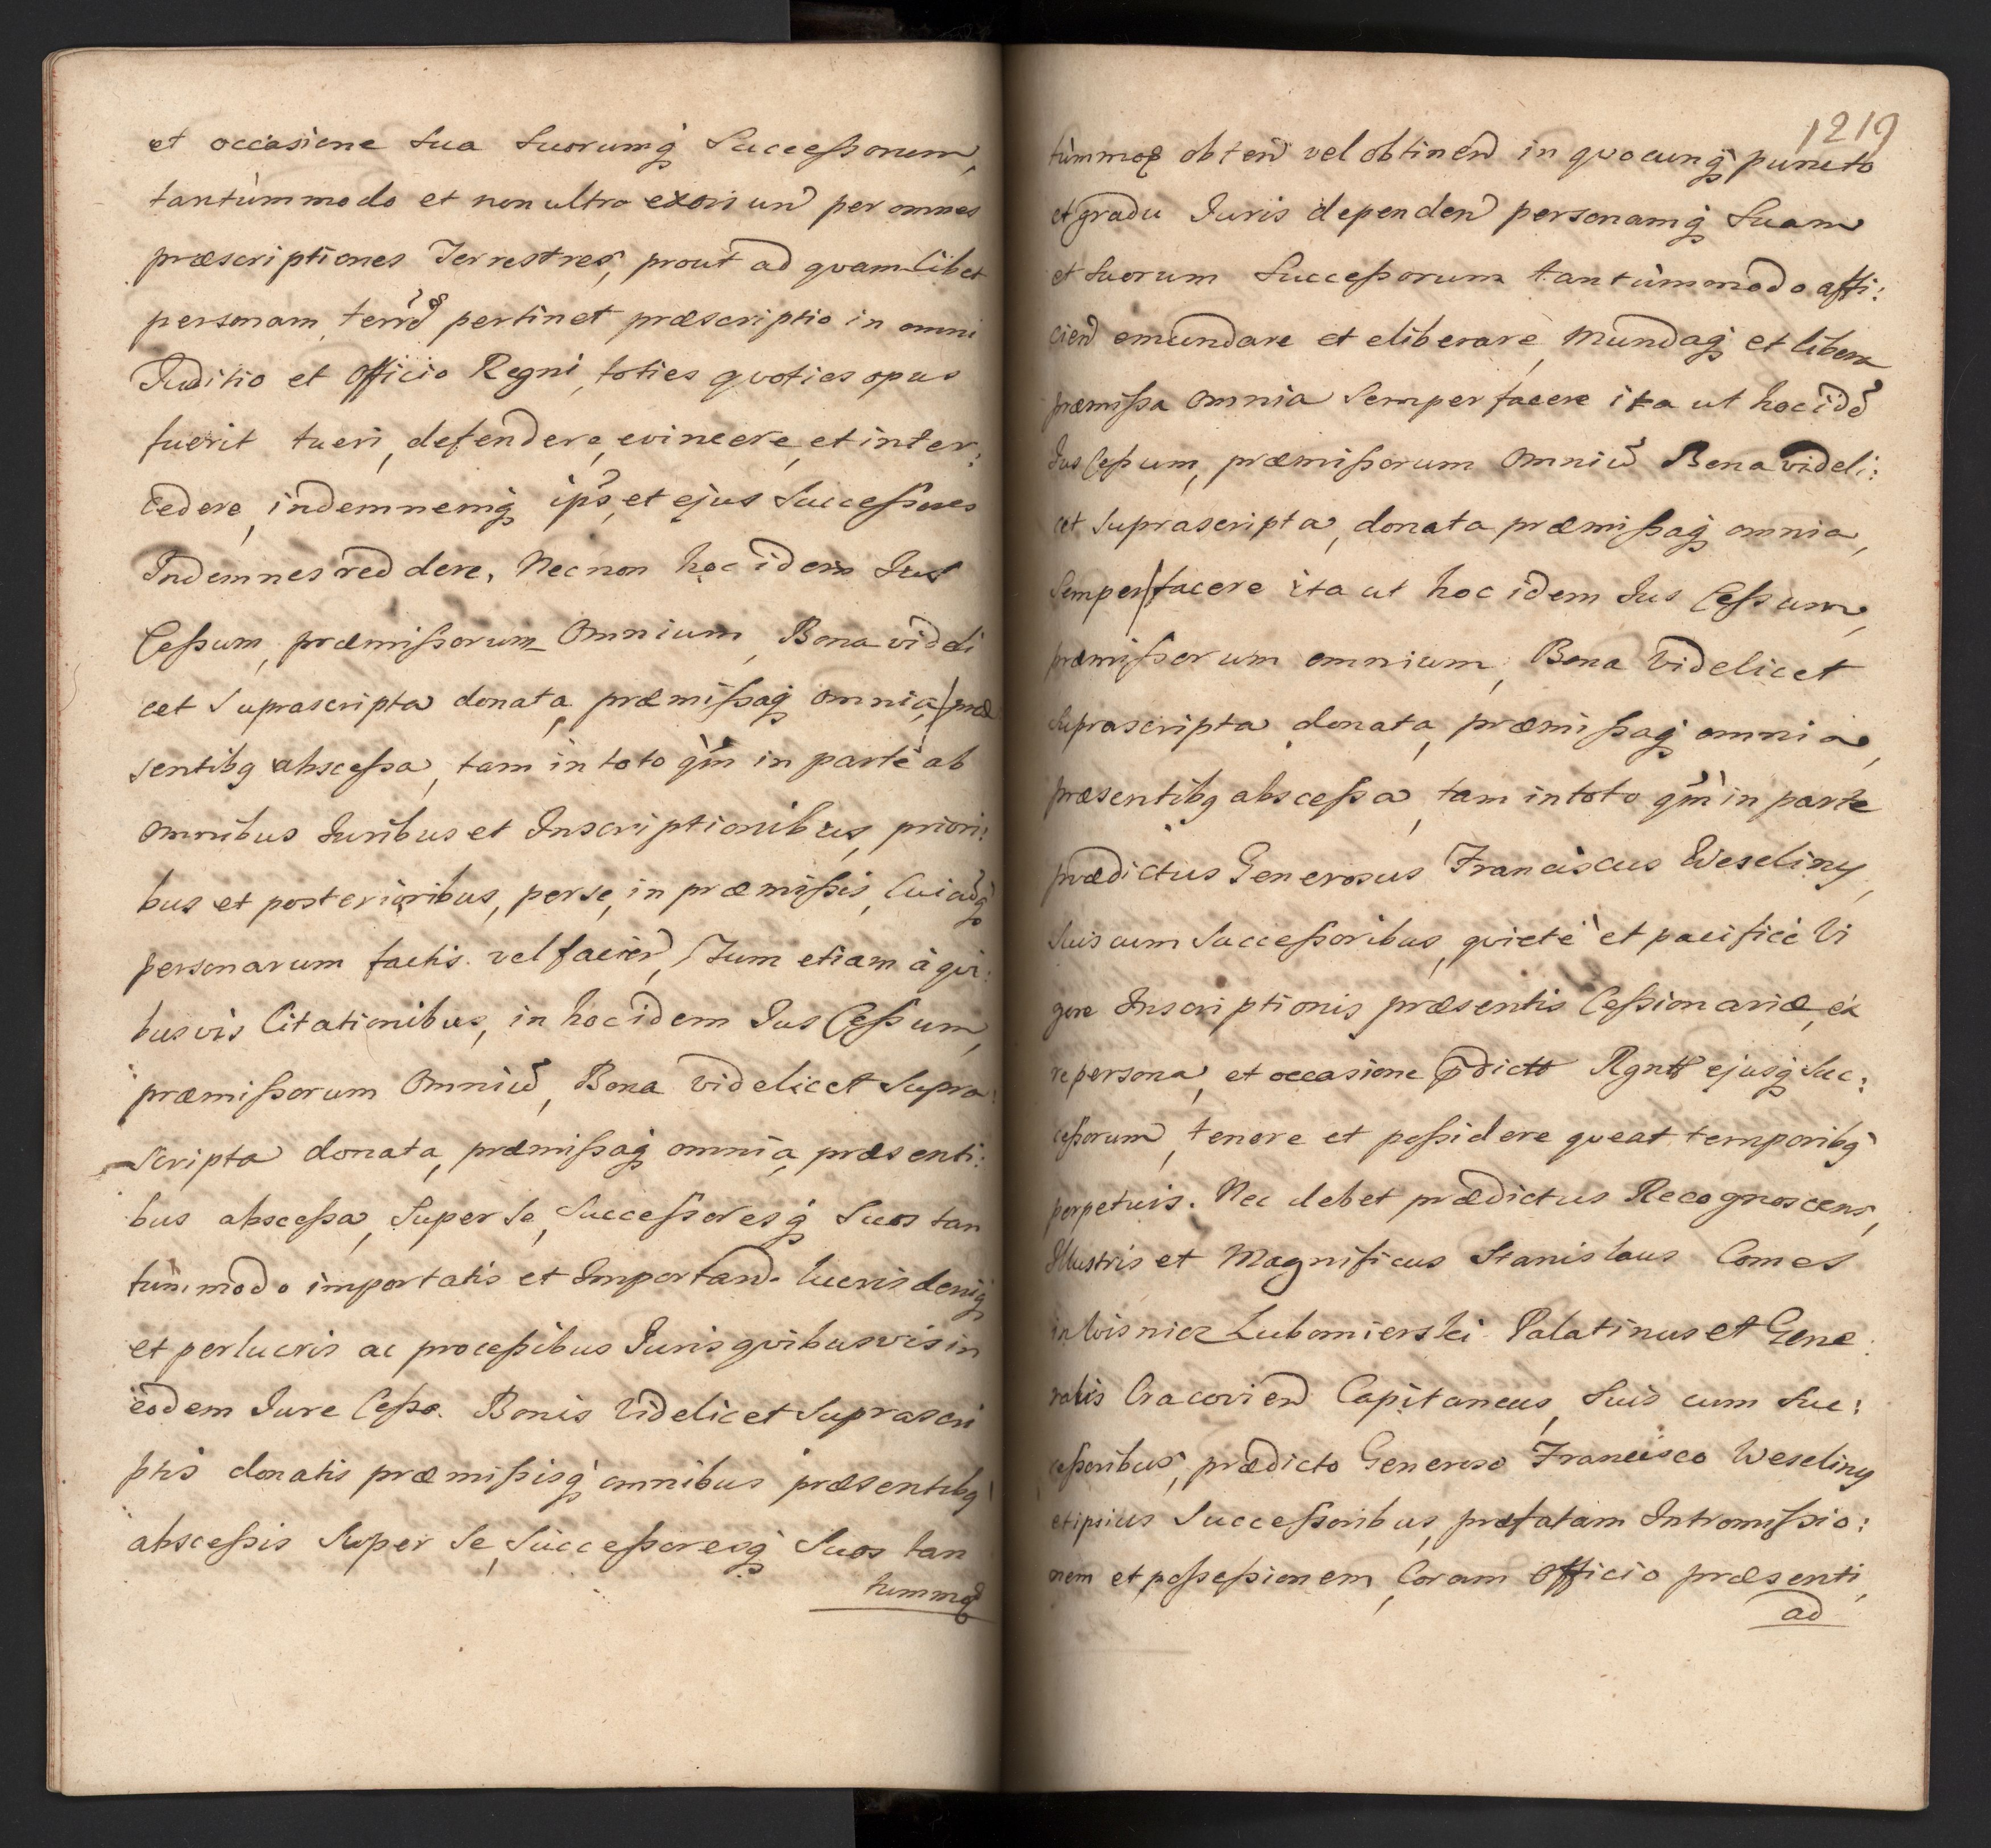 et occasione sua suorumq Successorum,
tantùmmodo et non ultra exoriund per omnes
præscriptiones Terrestres, prout ad quamlibet
personam terrd pertinet præscriptio in omni
Juditio et Officio Regni, toties quoties opus
fuerit tueri, defendere, evincere, et inter:
cedere, indemnemq ips, et ejus Successores
Indemnes reddere, Nec non hoc idem Jus
Cessum, præmissorum Omnium, Bona videli
cet Suprascripta donata, præmissaq omnia, præ
sentibq abscessa, tam in toto qm in parte ab
omnibus Juribus et Inscriptionibus, priori:
bus et posterioribus, per se, in præmissis, Cuiq
personarum factis vel faciend, Tum etiam à qui:
busvis Citationibus, in hoc idem Jus Cessum,
præmissorum Omniu, Bona videlicet Supra:
scripta donata, præmissaq omnia, præsenti:
bus abscessa, Super se, Successoresq Suos tan
tùmmodo importatis et Importand. lucris deniq
et perlucris ac processibus Juris quibusvis in
eodem Jure Cesso. Bonis Videlicet Suprascri
ptis donatis præmissisq omnibus præsentibq
abscessis Super Se, Successoresq Suos tan
tummod
1219
tùmmod obtend vel obtinend in quocunq puncto
et gradu Juris dependend personamq Suam
et Suorum Successorum tantùmmodo affi:
ciend emundare et eliberare, mundaq et libera
præmissa omnia Semper facere ita ut hoc ide
Jus Cessum, præmissorum Omniu Bona videli:
cet Suprascripta, donata præmissaq omnia,
Semper facere ita ut hoc idem Jus Cessum,
præmissorum omnium, Bona Videlicet
Suprascripta donata, præmissaq omnia,
præsentibq abscessa, tam in toto qm in parte
prædictus Generosus Franciscus Weseliny,
Suis cum Successoribus, quietè et pacificè Vi
gore Inscriptionis præsentis Cessionariæ, ex
re persona, et occasione pdicto Rgnts ejusq Suc:
cessorum, tenere et possidere queat temporibq
perpetuis. Nec debet prædictus Recognoscens,
Illustris et Magnificus Stanislaus Comes
in Wisnicz Lubomierski Palatinus et Gene
ralis Cracoviend Capitaneus, Suis cum Suc:
cessoribus, prædicto Generoso Francisco Weseliny
et ipsius Successoribus, præfatam Intromissio:
nem et possessionem, Coram Officio præsenti,
ad